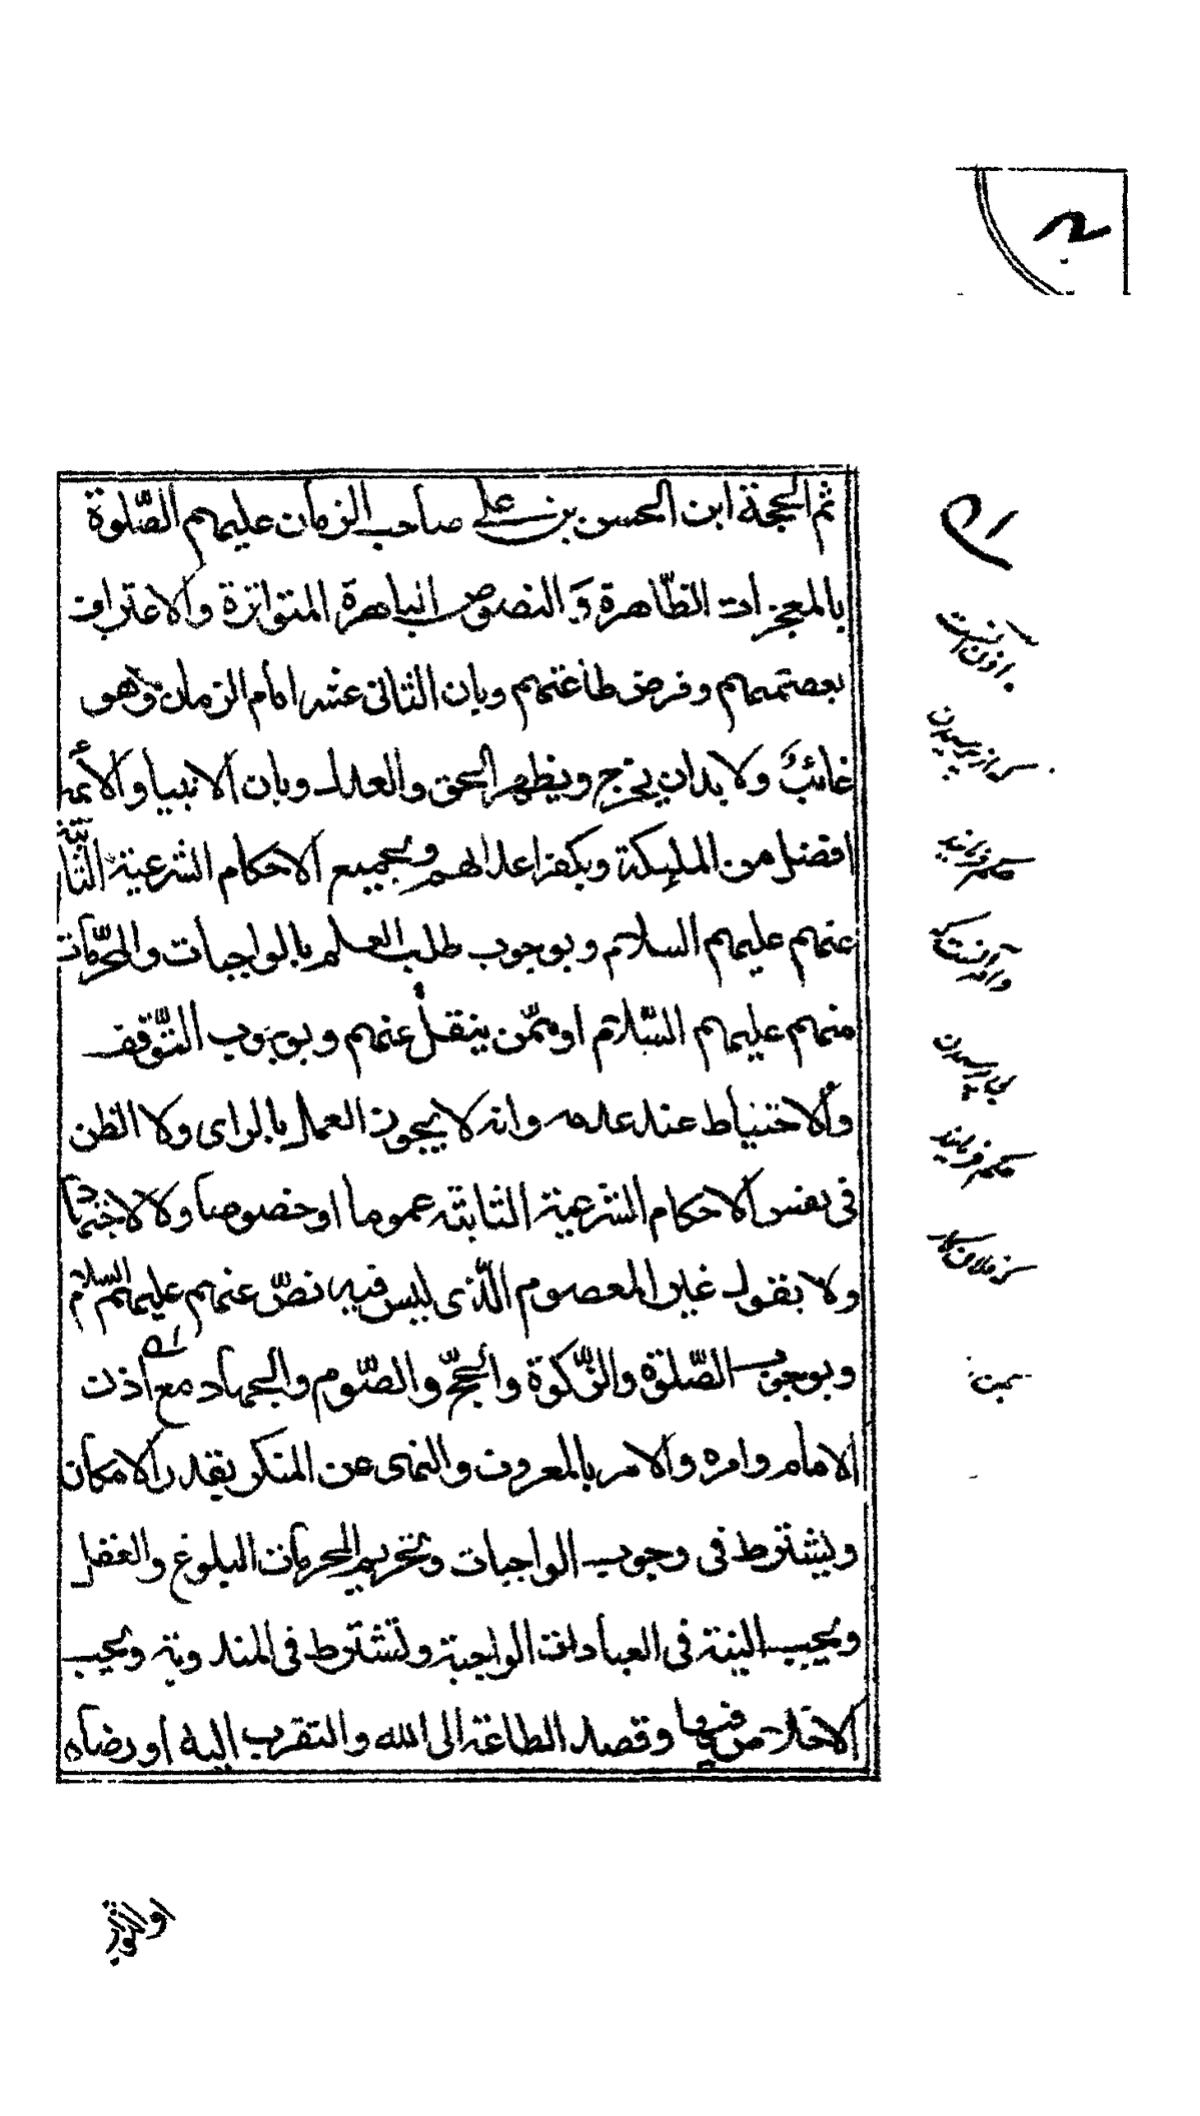 ثم الحجة ابن الحسن بن علي صاحب الزمان عليهم الصلوة
بالمعجزات الظاهرة و النصوص الباهرة المتواترة والاعتراف
بعصمتهم وفرض طاعتهم وبان الثانى عشر امام الزمان وهو
غائب ولا بد ان يخرج ويظهر الحق والعدل وبان الانبيا والأئمة
افضل من الملئكة وبكفر اعدائهم وبجميع الاحكام الشرعية الثابتة
عنهم عليهم السلام وبوجوب طلب العلم بالواجبات والمحرّمات
منهم عليهم السّلام او ممّن ينقل عنهم وبوجوب التوّقف
والاحتياط عند عدمه وانه لا يجوز العمل بالراى ولا الظن
فى نفس الاحكام الشرعية الثابتة عموما او خصوصا ولا الاجتهاد
ولا بقول غير المعصوم الّذى ليس فيه نصّ عنهم عليهم السلام
وبوجوب الصّلوة والزّكوة والحجّ والصّوم والجهاد مع اذن
الامام وامره والامر بالمعروف والنهى عن المنكر بقدر الامكان
ويشترط فى وجوب الواجبات وتحريم المحرمات البلوغ والعقل
ويجب النية فى العبادات الواجبة وتشترط فى المندوبة ويجب
الاخلاص فيها وقصد الطاعة الى الله والتقرب اليه او رضاه
حكم فرمايند
حكم فرمايند